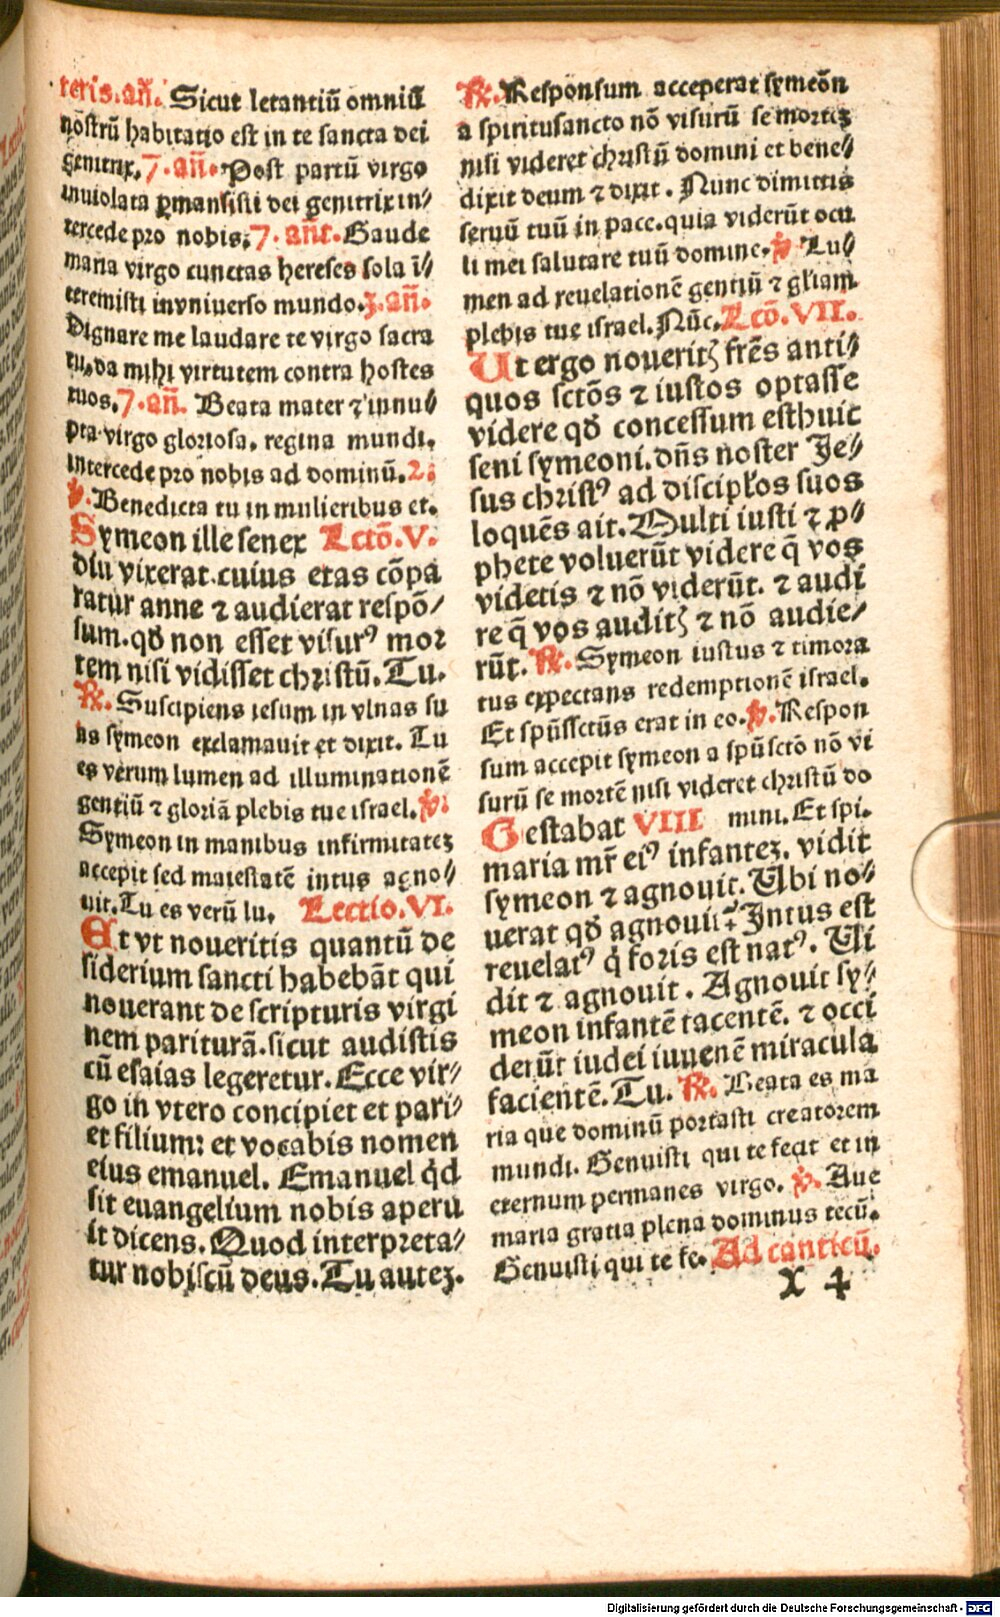 teris.añ. Sicut letantiũ omniũ
nostrũ habitatio est in te sancta dei
genitrix. 7. añ. Post partũ virgo
inuiolata ꝑmansisti dei genitrix in/
tercede pro nobis. 7. añt. Gaude
maria virgo cunctas hereses sola ĩ/
teremisti in vniuerso mundo. ʒ. añ.
Dignare me laudare te virgo sacra
ta. da mihi virtutem contra hostes
tuos. 7. añ. Beata mater ⁊ innu/
pta virgo gloriosa. regina mundi.
intercede pro nobis ad dominũ. 2.
℣. Benedicta tu in mulieribus et.
Symeon ille senex Lctõ. V.
diu vixerat. cuius etas cõpa
ratur anne ⁊ audierat respõ/
sum. qđ non esset visurꝰ mor
tem nisi vidisset christũ. Tu.
℟. Suscipiens iesum in vlnas su
as symeon exclamauit et dixit. Tu
es verum lumen ad illuminationẽ
gentiũ ⁊ gloriã plebis tue israel. ℣.
Symeon in manibus infirmitateʒ
accepit sed maiestatẽ intus agno/
uit. Tu es verũ lu. Lectio. VI.
Et vt noueritis quantũ de
siderium sancti habebãt qui
nouerant de scripturis virgi
nem pariturã. sicut audistis
cũ esaias legeretur. Ecce vir/
go in vtero concipiet et pari/
et filium: et vocabis nomen
eius emanuel. Emanuel q̇d
sit euangelium nobis aperu
it dicens. Quod interpreta/
tur nobiscũ deus. Tu auteʒ.
℟. Responsum acceperat symeõn
a spiritusancto nõ visurũ se morteʒ
nisi videret christũ domini et bene/
dixit deum ⁊ dixit. Nunc dimittis
seruũ tuũ in pace. quia viderũt ocu
li mei salutare tuũ domine. ℣. Lu/
men ad reuelationẽ gentiũ ⁊ głiam
plebis tue israel. Nũc. Lctõ. VII.
Ut ergo nouerit̕ʒ frẽs anti/
quos sctõs ⁊ iustos optasse
videre qđ concessum est huic
seni symeoni. dñs noster Je/
sus christꝰ ad discipłos suos
loquẽs ait. Multi iusti ⁊ ꝓ/
phete voluerũt videre q̃ vos
videtis ⁊ nõ viderũt. ⁊ audi
re q̃ vos auditʒ ⁊ nõ audie/
rũt. ℟. Symeon iustus ⁊ timora
tus expectans redemptionẽ israel.
Et spũssctũs erat in eo. ℣. Respon
sum accepit symeon a spũsctõ nõ vi
surũ se mortẽ nisi videret christũ do
Gestabat VIII mini. Et spi.
maria mr̃ eiꝰ infanteʒ. vidit
symeon ⁊ agnouit. Ubi no/
uerat qđ agnouit? Intus est
reuelatꝰ q̇ foris est natꝰ. Ui
dit ⁊ agnouit. Agnouit sy/
meon infantẽ tacentẽ. ⁊ occi
derũt iudei iuuenẽ miracula
facientẽ. Tu. ℟. Beata es ma
ria que dominũ portasti creatorem
mundi. Genuisti qui te fecit et in
eternum permanes virgo. ℣. Aue
maria gratia plena dominus tecũ.
Genuisti qui te fe. Ad canticũ.
X 4
Digitalisierung gefördert durch die Deutsche Forschungsgemeinschaft - DFG